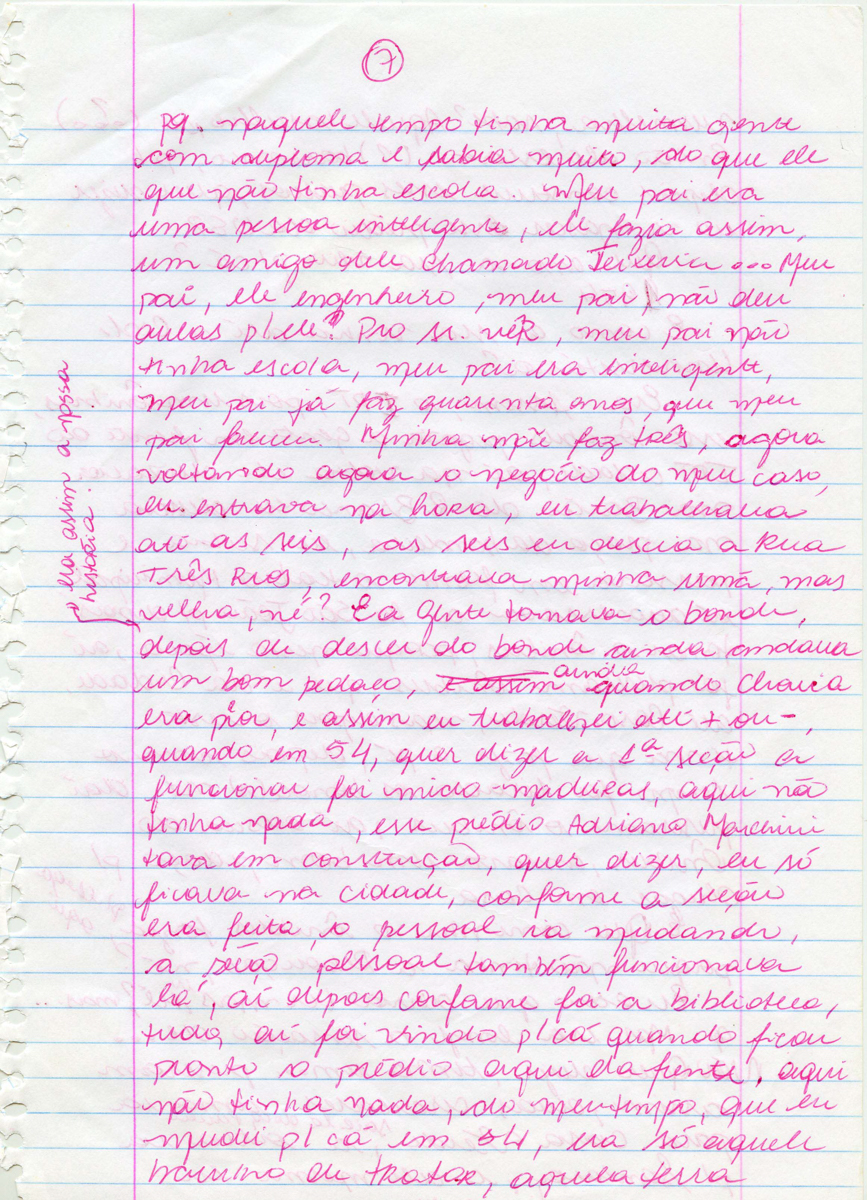 7
pq. naquele tempo tinha muita gente
com diploma e sabia muito, do que ele
que não tinha escola. Meu pai era
uma pessoa inteligente, ele fazia assim,
um amigo dele chamado Teixeira... Meu
pai, ele engenheiro, meu pai, não deu
aulas p/ ele? Pro sr. vêR, meu pai não
tinha escola, meu pai era inteligente,
meu pai já faz quarenta anos, que meu
pai faleceu. Minha mãe faz três, agora
voltando agora o negócio do meu caso,
eu entrava na hora, eu trabalhava
até as seis, as seis eu descia a Rua
Três Rios, encontrava minha irmã, mas
velha, né? E a gente tomava o bonde,
era assim a nossa
história.
depois de descer do bonde ainda andava
um bom pedaço, e assim ainda quando chovia
era pior, e assim eu trabalhei até + ou -,
quando em 54, quer dizer a 1ª secção a
funcionar foi micro-madeiras, aqui não
tinha nada, esse prédio Adriano Marchini
tava em construção, quer dizer, eu só
ficava na cidade, conforme a seção
era feita, o pessoal ia mudando,
a seção pessoal também funcionava
lá, aí depois conforme foi a biblioteca,
tudo, aí foi vindo p/ cá quando ficou
pronto o prédio aqui da frente, aqui
não tinha nada, do meu tempo, que eu
mudei p/ cá em 54, era só aquele
de trator, aquela terra